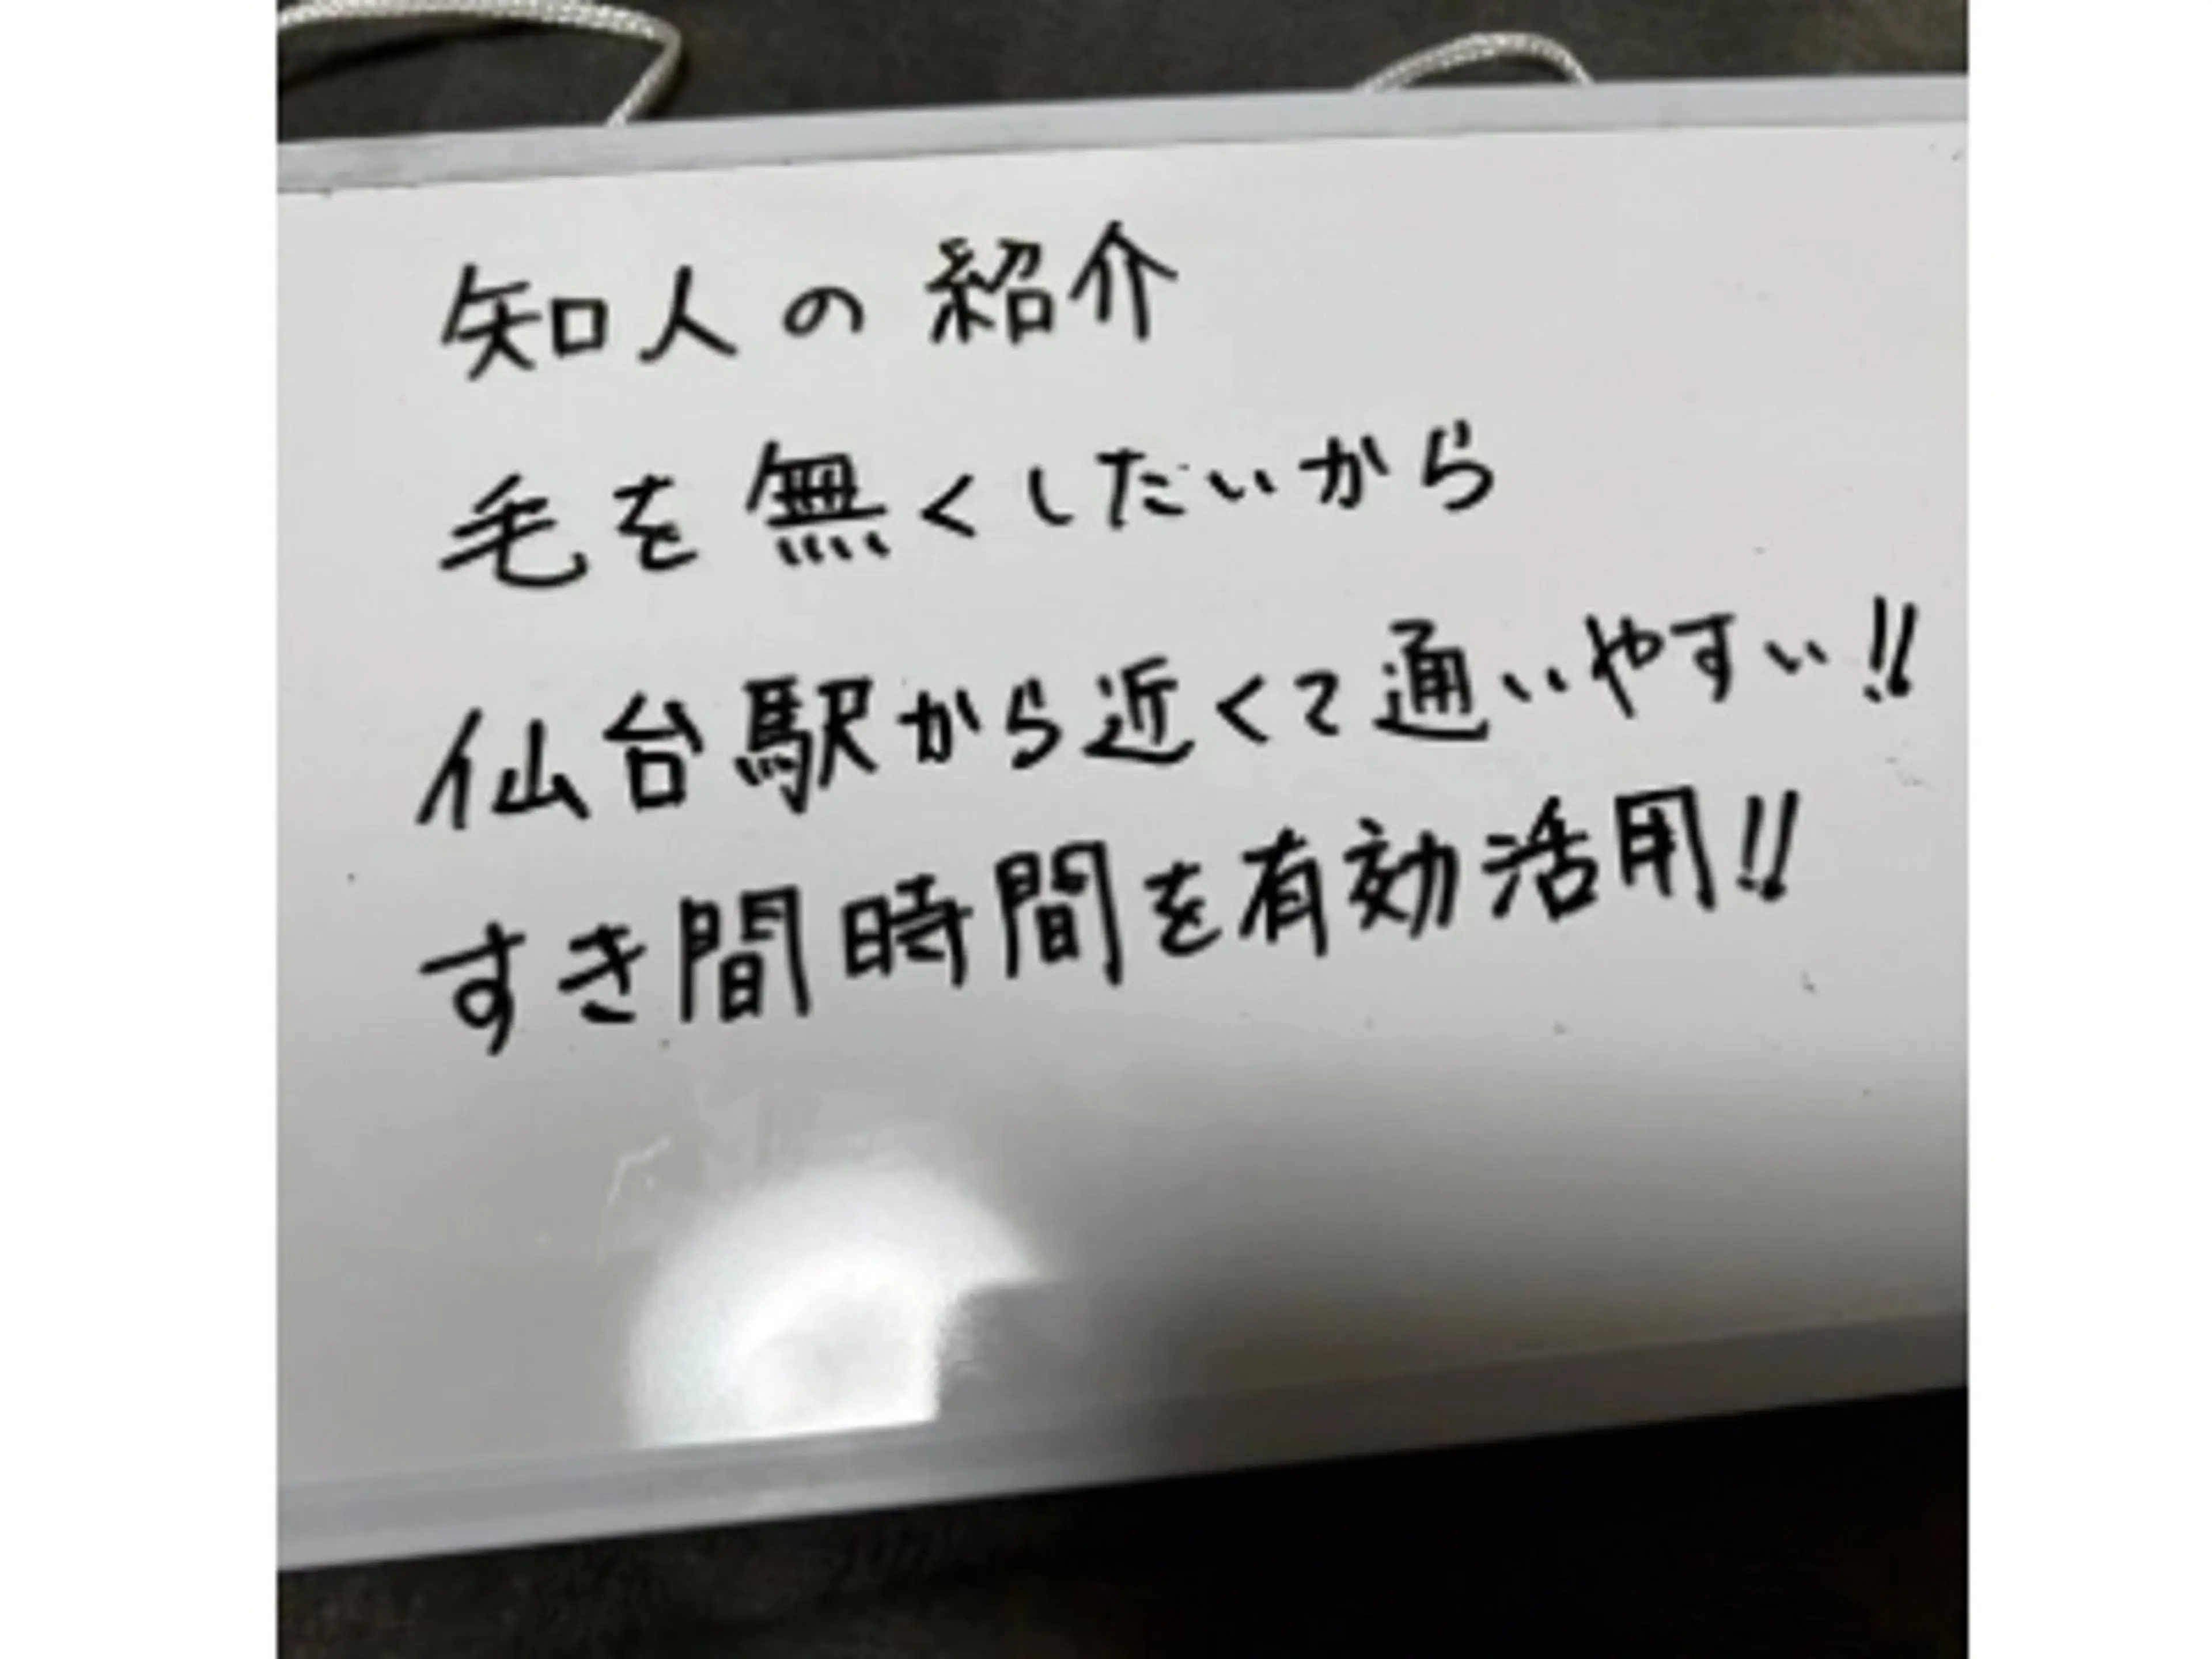 知人の紹介
毛を無くしたいから
仙台駅から近くて通いやすい!!
すき間時間を有効活用!!